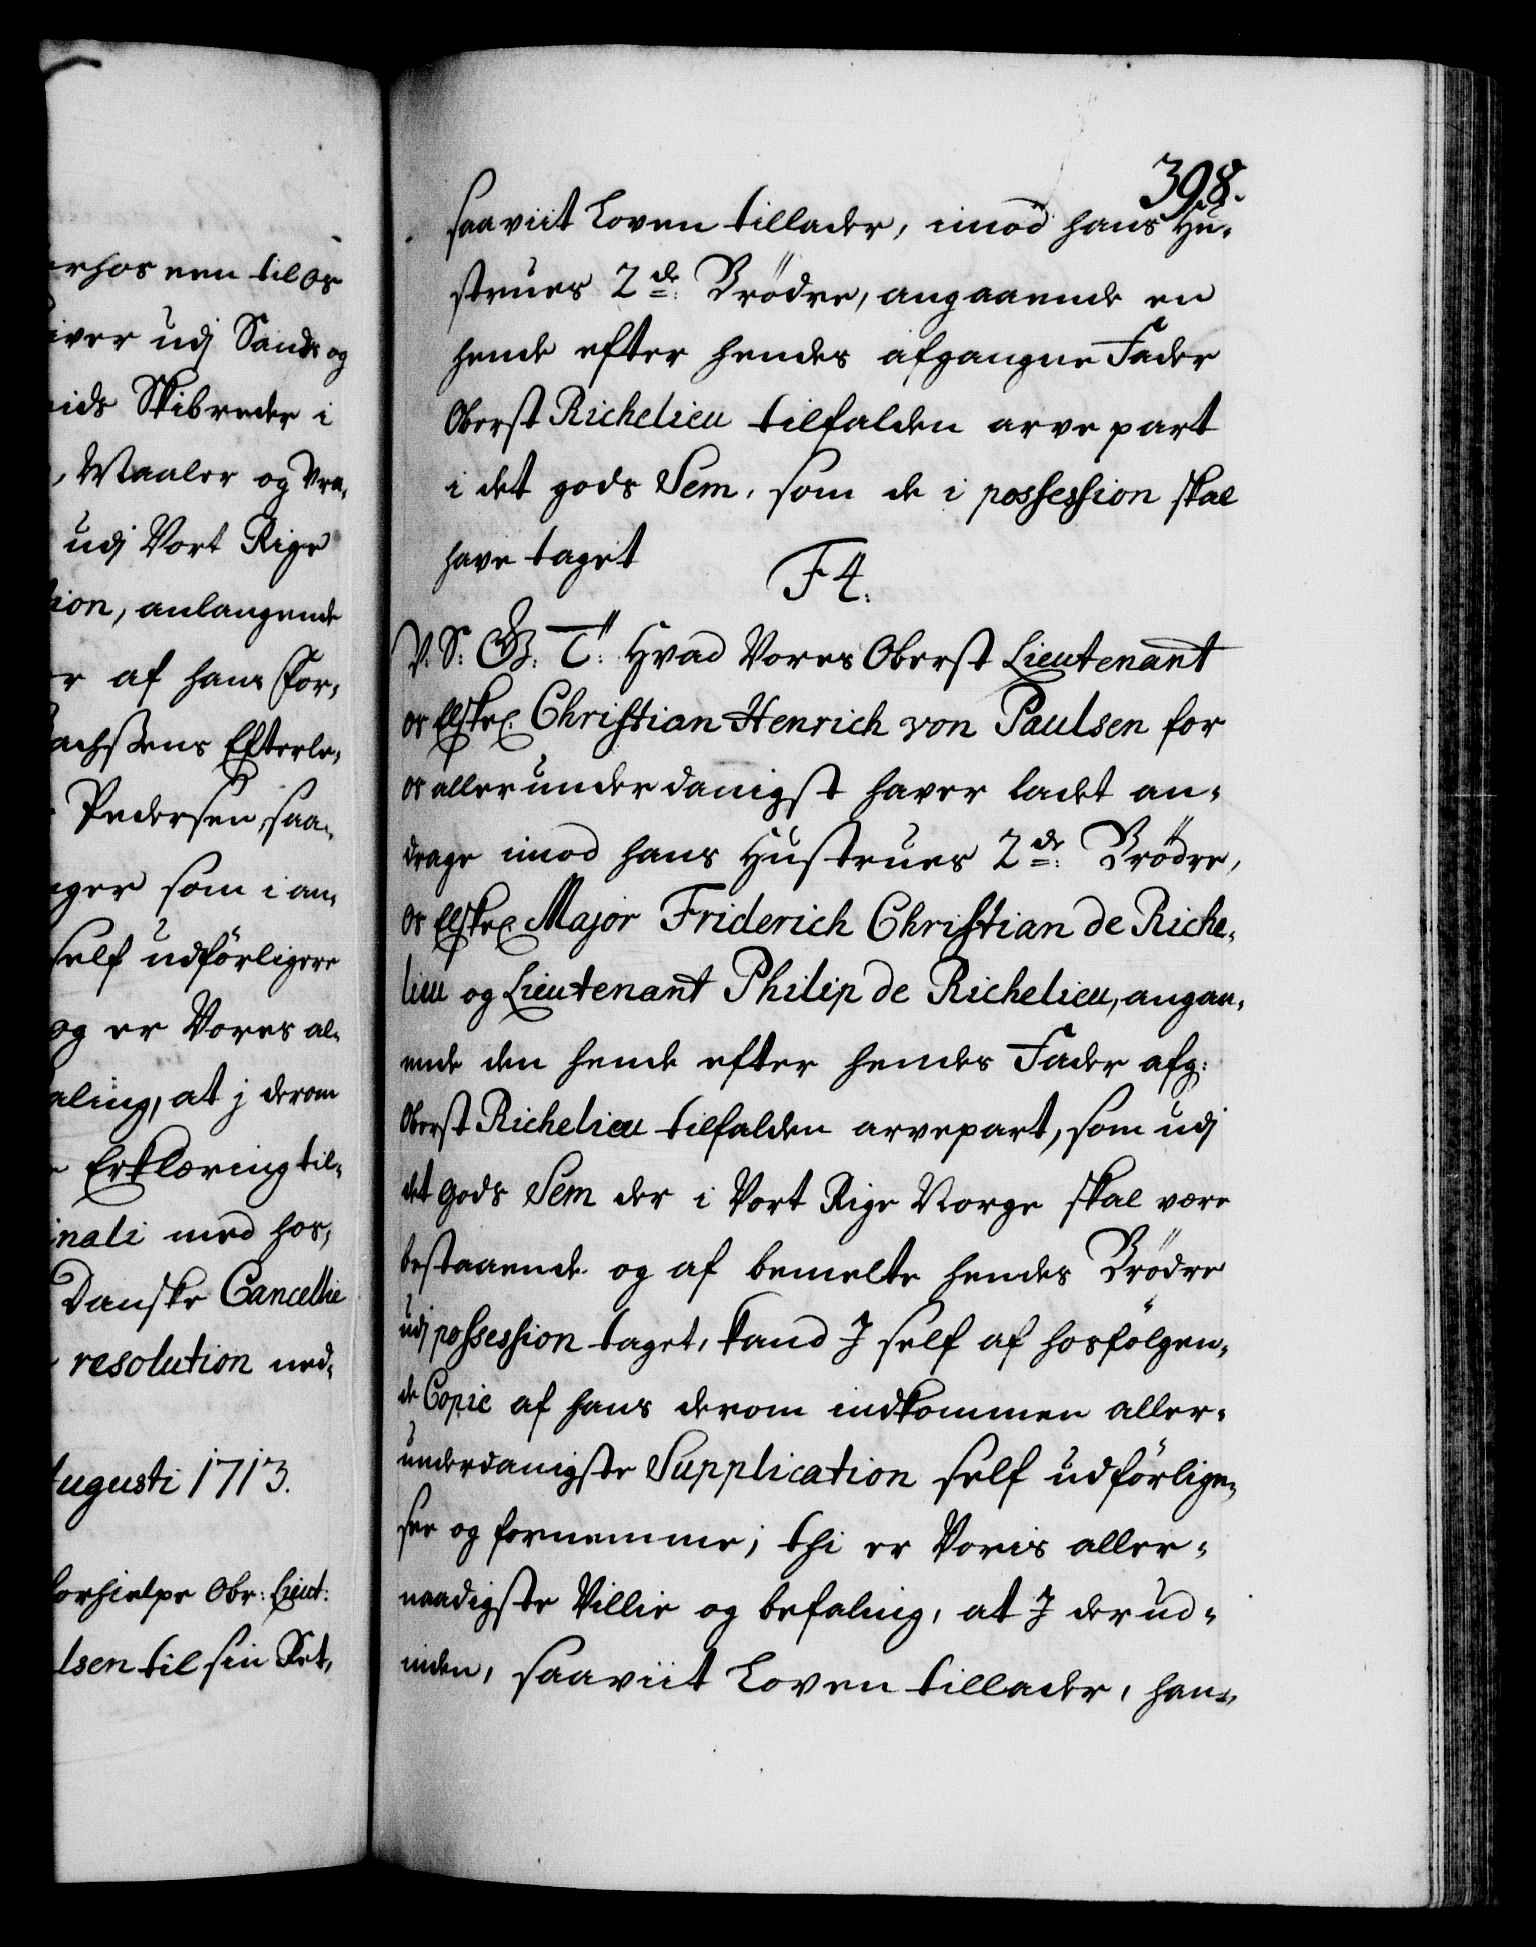 rhos een til os
iver udj Sands og
eids Skibreder i
, Waaler og Vra,
udj Vort Rige
tion, anlangende
r af hans For,
achsens Efterle,
Pedersen, saa,
nger som i an,
self udförligere
og er Vores al,
aling, at j derom
Erklæring til,
inali med hos,
Danske Cancellie
resolution ned,
Augusti 1713.
forhielpe Obr: Lieut:
lsen til sin Ret,
398.
saaviit Loven tillader, imod hans Hu,
strues 2de: Brödre, angaaende en
hende efter hendes afgangne Fader
Oberst Richelieu tilfalden arve part
i det gods Sem, som de i possession skal
have taget
F 4.
V. S: G. T: Hvad Vores Oberst Lieutenant
os Elskel. Christian Henrich von Paulsen for
os allerunderdanigst haver ladet an,
drage imod hans Hustrues 2de: Brödre,
os Elskel. Major Friderich Christian de Riche,
lieu og Lieutenant Philip de Richelieu, angaa,
ende den hende efter hendes Fader afg:
Oberst Richelieu tilfalden arvepart, som udj
det Gods Sem der i Vort Rige Norge skal være
bestaaende og af bemelte hendes Brödre
udj possession taget, kand J self af hosfölgen,
de Copie af hans derom indkommen aller,
underdanigste Supplication self udförlige,
see og fornemme; thi er Voris aller,
naadigste Villie og befaling, at J derud,
inden, saaviit Loven tillader, han,